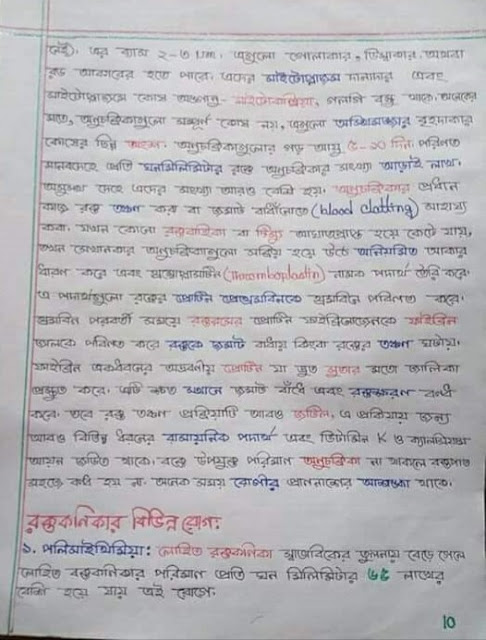 নেই)। এর ব্যাস ২-৩ μm. এগুলো গোলাকার, ডিম্বাকার, অথবা
রড আকারের হতে পারে। এদের সাইটোপ্লাজম দানাদার এবং
সাইটোপ্লাজমে কোষ অঙ্গাণু- মাইটোকন্ড্রিয়া, গলগি বস্তু থাকে। অনেকের
মতে, অণুচক্রিকাগুলো সম্পূর্ণ কোষ নয়, এগুলো অস্থিমজ্জার বৃহদাকার
কোষের ছিন্ন অংশ। অণুচক্রিকাগুলোর গড় আয়ু ৫-১০ দিন। পরিণত
মানবদেহে প্রতি ঘনমিলিমিটার রক্তে অণুচক্রিকার সংখ্যা আড়াই লাখ।
অসুস্থ দেহে এদের সংখ্যা আরও বেশি হয়। অণুচক্রিকার প্রধান
কাজ রক্ত তঞ্চন করা বা জমাট বাঁধানোতে (blood clotting) সাহায্য
করা। যখন কোনো রক্তবাহিকা বা টিস্যু আঘাতপ্রাপ্ত হয়ে কেটে যায়,
তখন সেখানকার অণুচক্রিকাগুলো সক্রিয় হয়ে উঠে অনিয়মিত আকার
ধারণ করে এবং থ্রম্বোপ্লাস্টিন (Thromboplastin) নামক পদার্থ তৈরি করে।
এ পদার্থগুলো রক্তের প্রোটিন প্রোথ্রমবিনকে থ্রমবিনে পরিণত করে।
থ্রমবিন পরবর্তী সময়ে রক্তরসের প্রোটিন ফাইব্রিনোজেনকে ফাইব্রিন
জালকে পরিণত করে রক্তকে জমাট বাধায় কিংবা রক্তের তঞ্চন ঘটায়।
ফাইব্রিন একধরনের অদ্রবণীয় প্রোটিন যা দ্রুত সুতার মতো জালিকা
প্রস্তুত করে। এটি ক্ষত স্থানে জমাট বাঁধে এবং রক্তক্ষরণ বন্ধ
করে। তবে রক্ত তঞ্চন প্রক্রিয়াটি আরও জটিল, এ প্রক্রিয়ার জন্য
আরও বিভিন্ন ধরনের রাসায়নিক পদার্থ এবং ভিটামিন K ও ক্যালসিয়াম
আয়ন জড়িত থাকে। রক্তে উপযুক্ত পরিমাণ অণুচক্রিকা না থাকলে রক্তপাত
সহজে বন্ধ হয় না। অনেক সময় রোগীর প্রাণনাশের আশঙ্কা থাকে।
রক্তকণিকার বিভিন্ন রোগ:
১. পলিসাইথিমিয়া: লোহিত রক্তকণিকা স্বাভাবিকের তুলনায় বেড়ে গেলে
লোহিত রক্তকণিকার পরিমাণ প্রতি ঘন মিলিমিটার ৬৫ লাখের
বেশি হয়ে যায় এই রোগে।
10